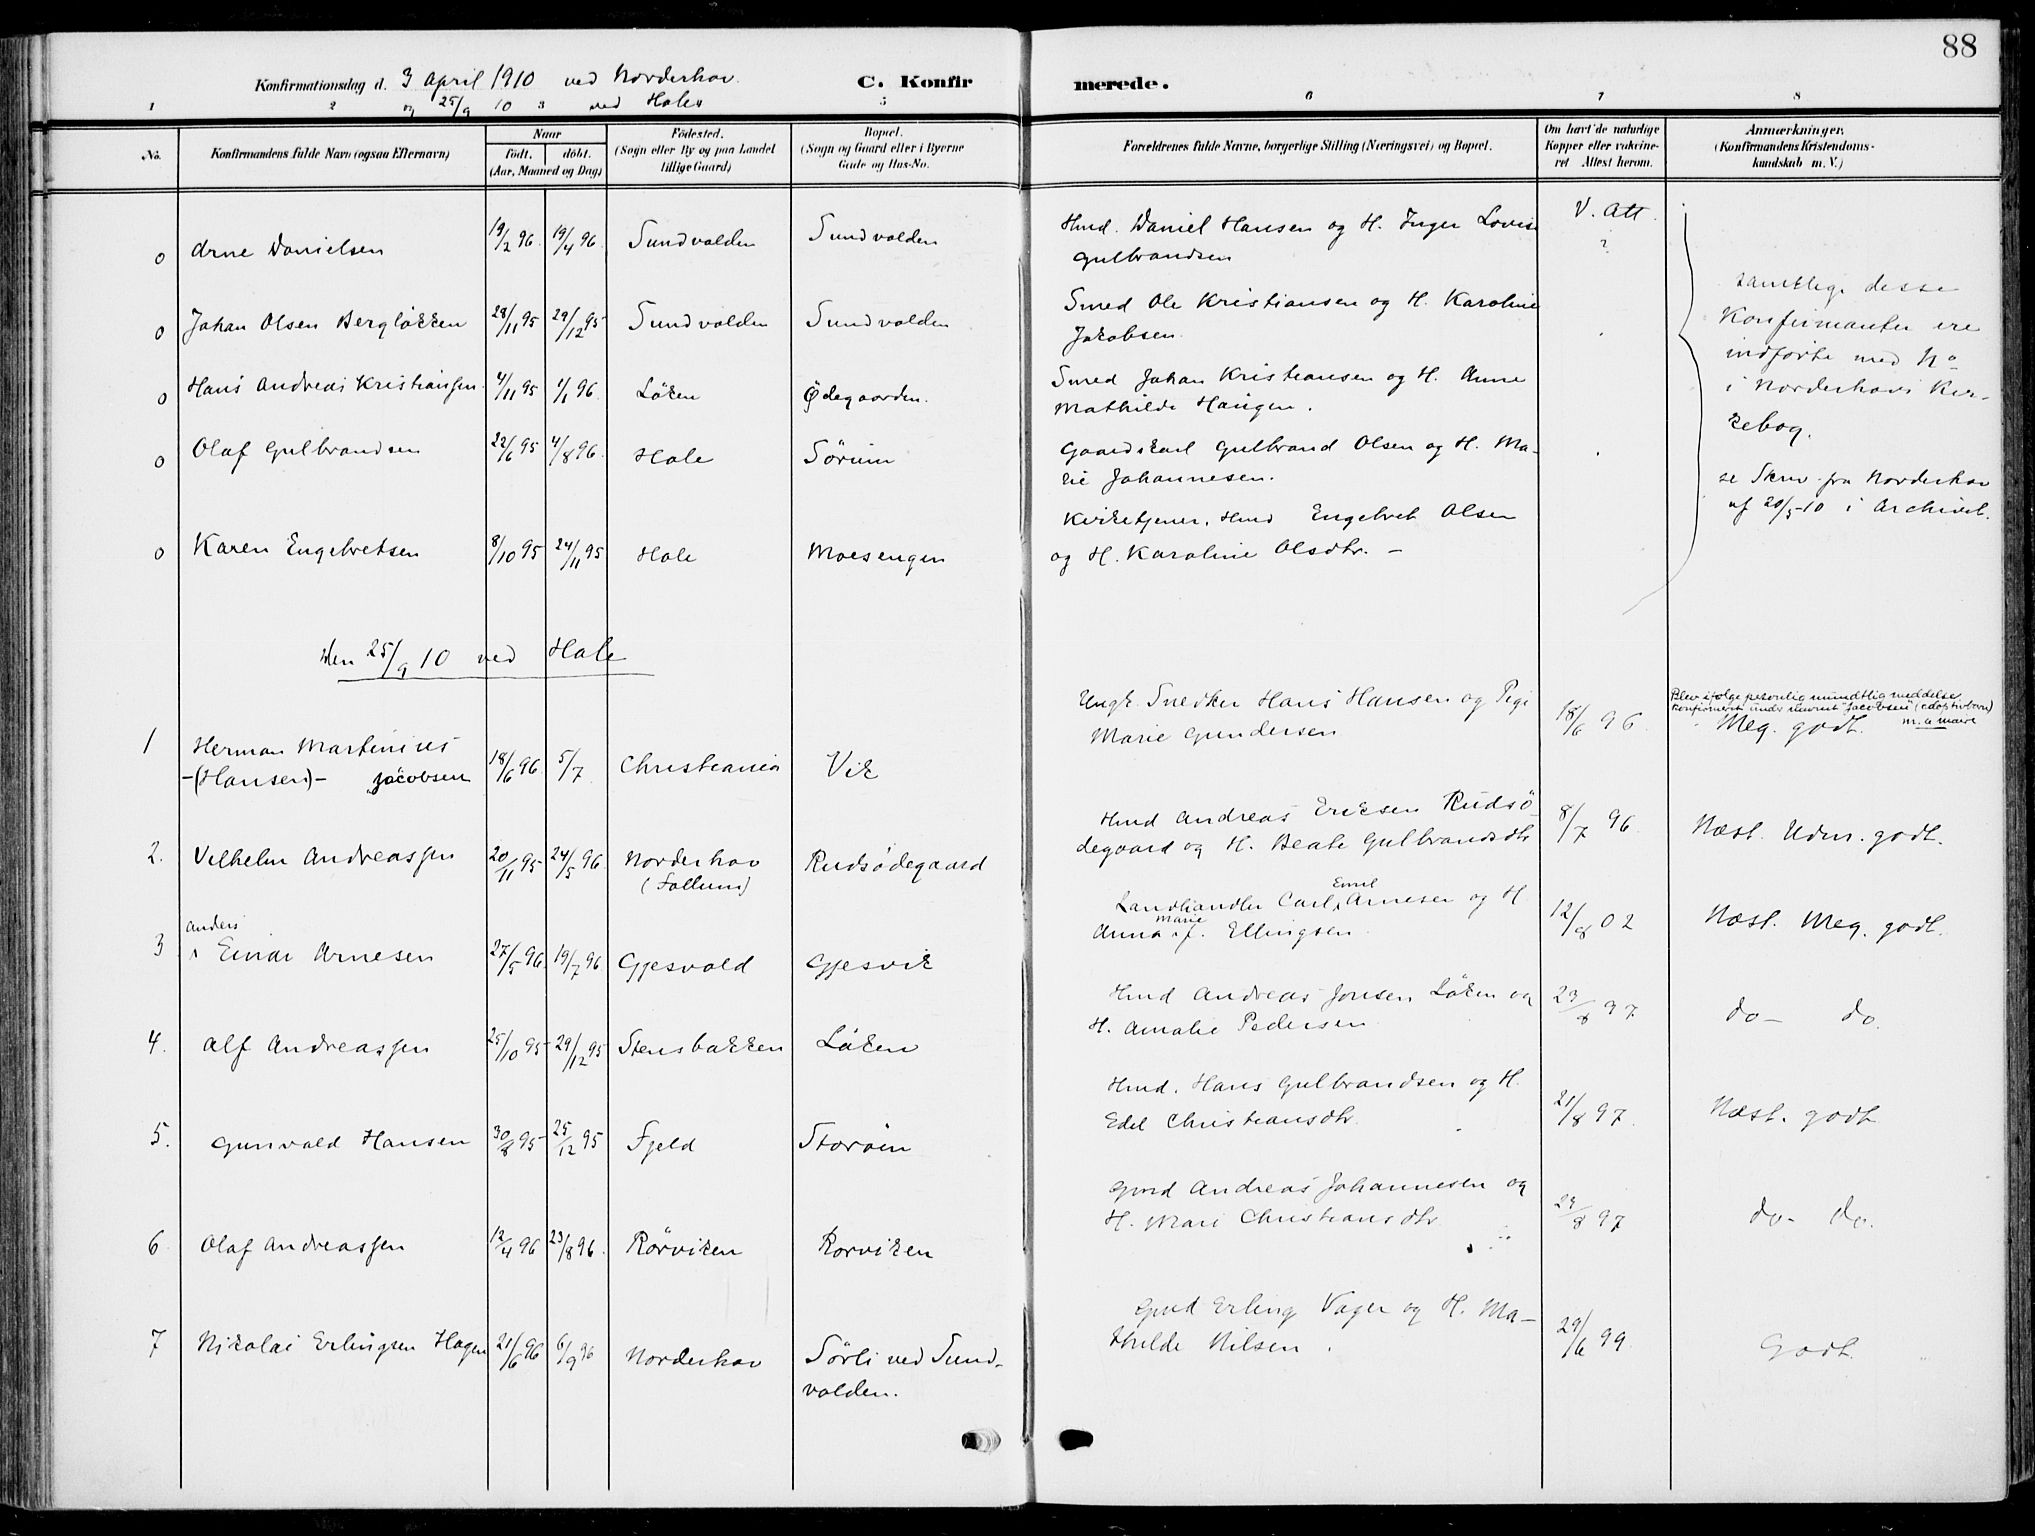 88
Konfirmationsdag d. 3 April 1910 ved Norderhov. C. Konfirmerede.
og 25/9 10 ved Hole
1 2 3 5 6 7 8
No. Konfirmandens fulde Navn (ogsaa Efternavn) Naar födt. döbt. (Aar, Maaned og Dag) Födested. (Sogn eller By og paa Landet tillige Gaard) Bopæl. (Sogn og Gaard eller i Byerne Gade og Hus-No. Forældrenes fulde Navne, borgerlige Stilling (Næringsvei) og Bopæl. Om havt de naturlige Kopper eller vakcineret Attest herom. Anmærkninger. (Konfirmandens Kristendomskundskab m. V.)
0 Arne Danielsen 19/2 96. 19/4 96. Sundvolden Sundvolden Hmd. Daniel Hansen og H. Inger Lovise V. Att.
Gulbrandsen ?
0 Johan Olsen Bergløkken 28/11 95 29/12 95 Sundvolden Sundvolden Smed Ole Kristiansen og H. Karoline
Jakobsen.
0 Hans Andreas Kristiansen 4/11 95 1/1 96. Løken Ødegaarden. Smed Johan Kristiansen og H. Anne
Mathilde Haugen.
0 Olaf Gulbrandsen 22/6 95 4/8 96. Hole Sørum Gaardskarl Gulbrand Olsen og H. Ma-
rie Johannesen.
0 Karen Engebretsen 8/10 95 24/11 95 Hole Moesengen Kirketjener, Hmd Engebret Olsen
og H. Karoline Olsdtr. -
Samtlige desse
Konfirmanter ere
indførte med No
i Norderhovs Kir-
kebog.
se Skriv. fra Norderhov
af 20/5-10 i Archivet.
Den 25/9 10 ved Hole
1 Herman Martinius 18/6 96. 5/7. Christiania Vik Ungk. Snedker Hans Hansen og Pige 18/6 96 Blev ifølge personlig mundtlig meddelse
-(Hansen)- Jacobsen Marie Gundersen konfirmeret under navnet "Jacobsen" (adoptivbarn)
Meg. godt.
2. Vilhelm Andreassen 20/11 95 24/5 96. Norderhov Rudsødegaard Hmd Andreas Ericsen Rudsø- 8/7 96. Næst. Udm. godt.
(Follum) degaard og H. Beate Gulbrandsdtr
3 Anders Einar Arnesen 27/5 96. 19/7 96 Gjesvold Gjesvik Landhandler Carl Emil Arnesen og H. 12/8 02 Næst. Meg. godt.
Anna Marie J. Ellingsen.
4. Alf Andreassen 25/10 95 29/12 95 Stensbakken Løken Hmd Andreas Jonsen Løken og 23/8 97. do- do.
H. Amalie Pedersen
5. Gunvald Hansen 30/8 95 25/12 95 Fjeld Storøen Hmd. Hans Gulbrandsen og H. 21/8 97. Næst. godt
Edel Christiansdtr.
6. Olaf Andreassen 12/4 96 23/8 96. Rørviken Rørviken Gmd Andreas Johannesen og 23/8 97 do- do.
H. Mari Christiansdtr.
7 Nikolai Erlingsen Hagen 21/6 96 6/9 96 Norderhov Sørli ved Sund- Gmd Erling Vager og H. Ma- 29/6 99. Godt.
volden. thilde Nilsen.